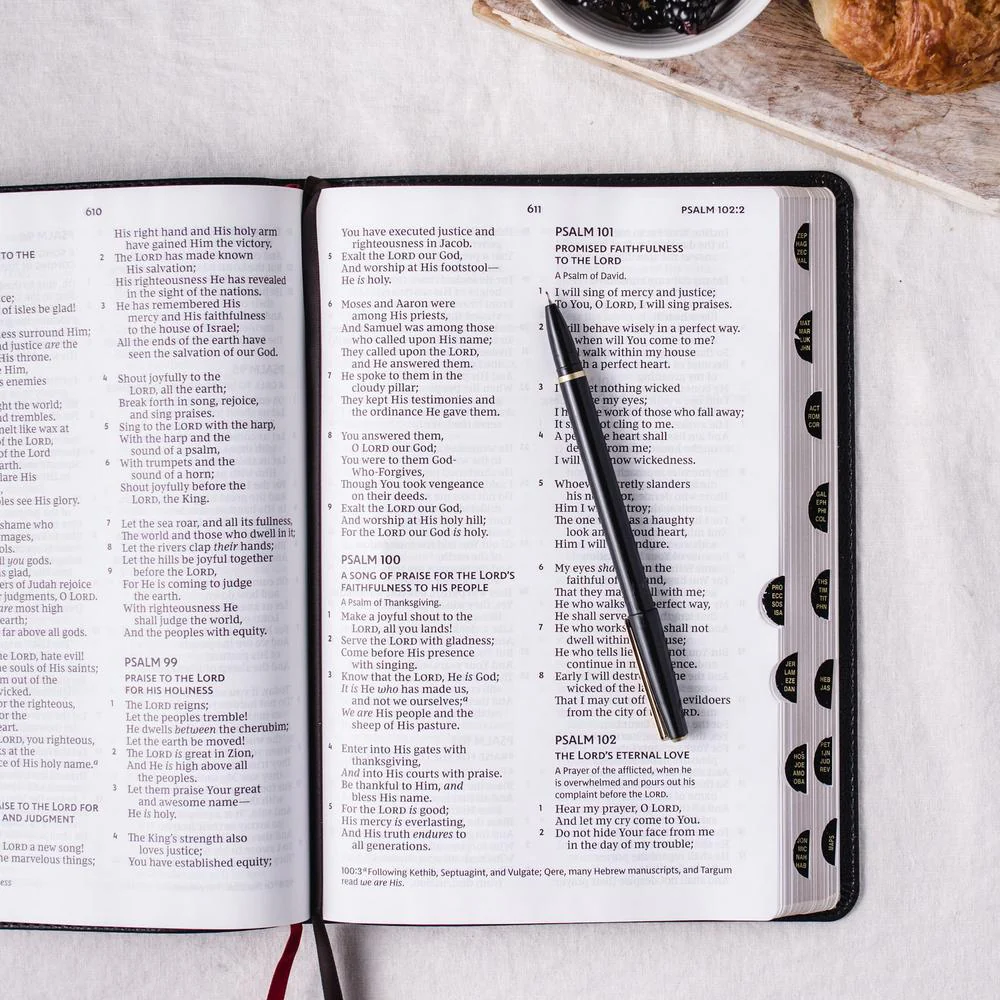 610
TO THE
of isles be glad!
ess surround Him;
d justice are the
His throne.
e Him,
s enemies
ght the world;
nd trembles.
nelt like wax at
of the LORD,
of the Lord
arth.
lare His
ples see His glory.
shame who
mages,
ols.
ll you gods.
s glad,
ers of Judah rejoice
r judgments, O LORD.
are most high
earth;
far above all gods.
he LORD, hate evil!
he souls of His saints;
m out of the
wicked.
or the righteous,
or the
eart.
e LORD, you righteous,
ks at the
ce of His holy name.a
AISE TO THE LORD FOR
AND JUDGMENT
LORD a new song!
e marvelous things;
ess
His right hand and His holy arm
have gained Him the victory.
2 The LORD has made known
His salvation;
His righteousness He has revealed
in the sight of the nations.
3 He has remembered His
mercy and His faithfulness
to the house of Israel;
All the ends of the earth have
seen the salvation of our God.
4 Shout joyfully to the
LORD, all the earth;
Break forth in song, rejoice,
and sing praises.
5 Sing to the LORD with the harp,
With the harp and the
sound of a psalm,
6 With trumpets and the
sound of a horn;
Shout joyfully before the
LORD, the King.
7 Let the sea roar, and all its fullness,
The world and those who dwell in it;
8 Let the rivers clap their hands;
Let the hills be joyful together
9 before the LORD,
For He is coming to judge
the earth.
With righteousness He
shall judge the world,
And the peoples with equity.
PSALM 99
PRAISE TO THE LORD
FOR HIS HOLINESS
1 The LORD reigns;
Let the peoples tremble!
He dwells between the cherubim;
Let the earth be moved!
2 The LORD is great in Zion,
And He is high above all
the peoples.
3 Let them praise Your great
and awesome name—
He is holy.
4 The King's strength also
loves justice;
You have established equity;
611
PSALM 102:2
You have executed justice and
righteousness in Jacob.
5 Exalt the LORD our God,
And worship at His footstool—
He is holy.
6 Moses and Aaron were
among His priests,
And Samuel was among those
who called upon His name;
They called upon the LORD,
and He answered them.
7 He spoke to them in the
cloudy pillar;
They kept His testimonies and
the ordinance He gave them.
8 You answered them,
O LORD our God;
You were to them God-
Who-Forgives,
Though You took vengeance
on their deeds.
9 Exalt the LORD our God,
And worship at His holy hill;
For the LORD our God is holy.
PSALM 100
A SONG OF PRAISE FOR THE LORD'S
FAITHFULNESS TO HIS PEOPLE
A Psalm of Thanksgiving.
1 Make a joyful shout to the
LORD, all you lands!
2 Serve the LORD with gladness;
Come before His presence
with singing.
3 Know that the LORD, He is God;
It is He who has made us,
and not we ourselves;a
We are His people and the
sheep of His pasture.
4 Enter into His gates with
thanksgiving,
And into His courts with praise.
Be thankful to Him, and
bless His name.
5 For the LORD is good;
His mercy is everlasting,
And His truth endures to
all generations.
PSALM 101
PROMISED FAITHFULNESS
TO THE LORD
A Psalm of David.
1 I will sing of mercy and justice;
To You, O LORD, I will sing praises.
2 will behave wisely in a perfect way.
when will You come to me?
walk within my house
a perfect heart.
3 I set nothing wicked
my eyes;
I work of those who fall away;
It not cling to me.
4 A heart shall
from me;
I will know wickedness.
5 Whoever secretly slanders
his
Him I
The one has a haughty
look heart,
Him I will
6 My eyes
faithful of
That they may with me;
He who walks perfect way,
He shall serve
7 He who works shall not
dwell within
He who tells
continue in
8 Early I will
wicked of the
That I may cut off evildoers
from the city of
PSALM 102
THE LORD'S ETERNAL LOVE
A Prayer of the afflicted, when he
is overwhelmed and pours out his
complaint before the LORD.
1 Hear my prayer, O LORD,
And let my cry come to You.
2 Do not hide Your face from me
in the day of my trouble;
100:3 a Following Kethib, Septuagint, and Vulgate; Qere, many Hebrew manuscripts, and Targum
read we are His.
ZEP
HAG
ZEC
MAL
MAT
MAR
LUK
JHN
ACT
ROM
COR
GAL
EPH
PHI
COL
PRO
ECC
SOS
ISA
THS
TIM
TIT
PHN
JER
LAM
EZE
DAN
HEB
JAS
HOS
JOE
AMO
OBA
PET
IJN
JUD
REV
JON
MIC
NAH
HAB
MAPS